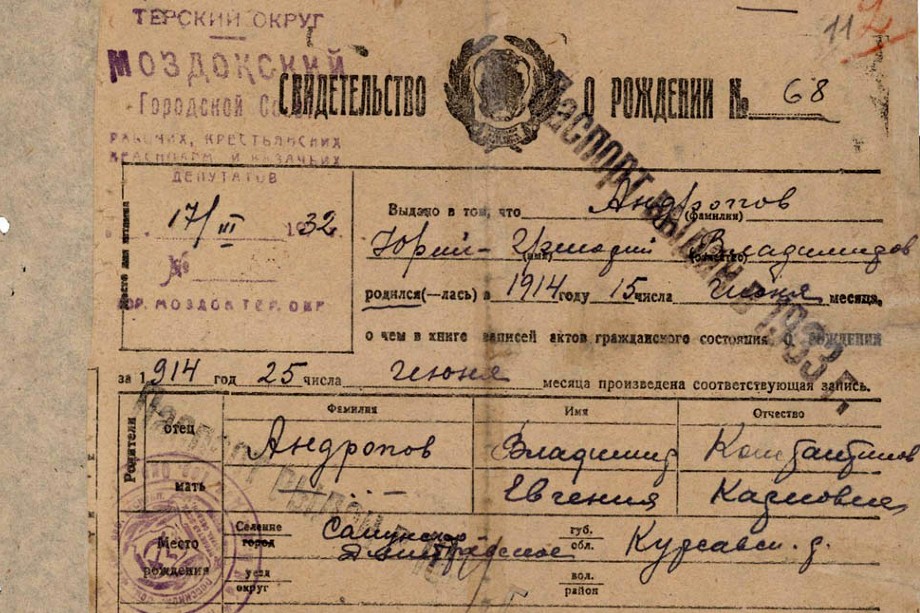 ТЕРСКИЙ ОКРУГ
МОЗДОКСКИЙ
Городской
РАБОЧИХ, КРЕСТЬЯНСКИХ
КРАСНОАРМ. И КАЗАЧЬИХ
ДЕПУТАТОВ
11
СВИДЕТЕЛЬСТВО О РОЖДЕНИИ № 68
17/III 1932
№
ГОР. МОЗДОК ТЕР. ОКР.
Паспорт выдан в 1933 г.
Выдано в том, что Андропов
(фамилия)
Юрий- Владимиров
(имя)
родился(—лась) в 1914 году 15 числа июня месяца,
о чем в книге записей актов гражданского состояния о рождении
за 1914 год 25 числа июня месяца произведена соответствующая запись.
Родители
Фамилия Имя Отчество
отец Андропов Владимир Константинов
мать Евгения Карловна
Место рождения
Селение
город
губ.
обл.
Курсавск. р.
уезд
округ
вол.
район
Паспорт выдан